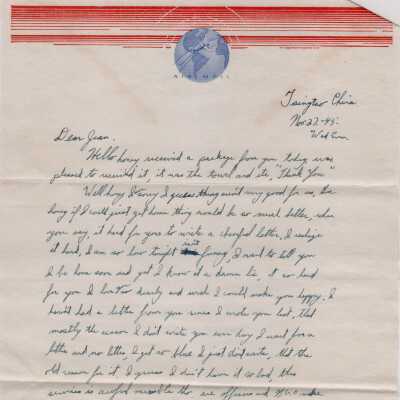 AIR MAIL
Tsingtao China
Nov. 27-45.
Wed Eve
Dear Jean,
Hello honey received a package from you today was
pleased to received it, it was the towel and etc, "Thank You"
Well honey I guess things aint very good for us, but
honey if I could just get home they would be so much better, when
you say, it hard for you to write a cheerful letter, I realize
it hard, I am so low tonight aint funny, I want to tell you
I be home soon and yet I know it a damn lie, it so hard
for you I love you dearly and wish I could make you happy, I
havent had a letter from you since I wrote you last, that
mostly the reason I didn't write you honey I wait for a
letter and no letter, I get so blue I just dont write, that the
old reason for it. I guess I don't have it so bad, this
service is awful miserable the officers and